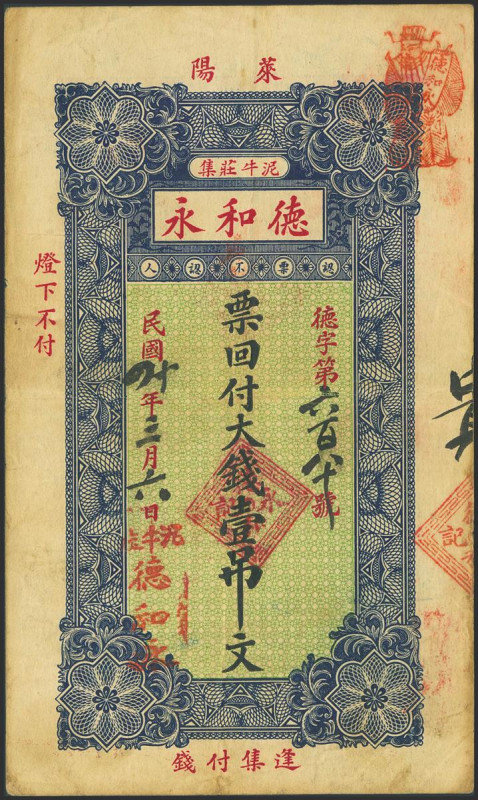 萊陽
泥牛莊集
德和永
認票不認人
德字第六百八十號
票回付大錢壹吊文
民國年三月六日
泥牛莊
德和永
燈下不付
逢集付錢
記
記